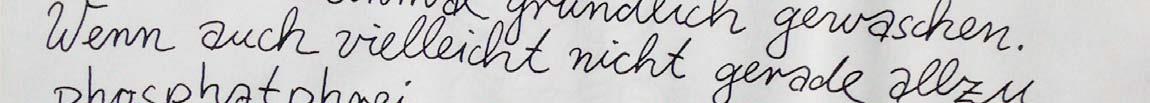 gründlich gewaschen.
Wenn auch vielleicht nicht gerade allzu